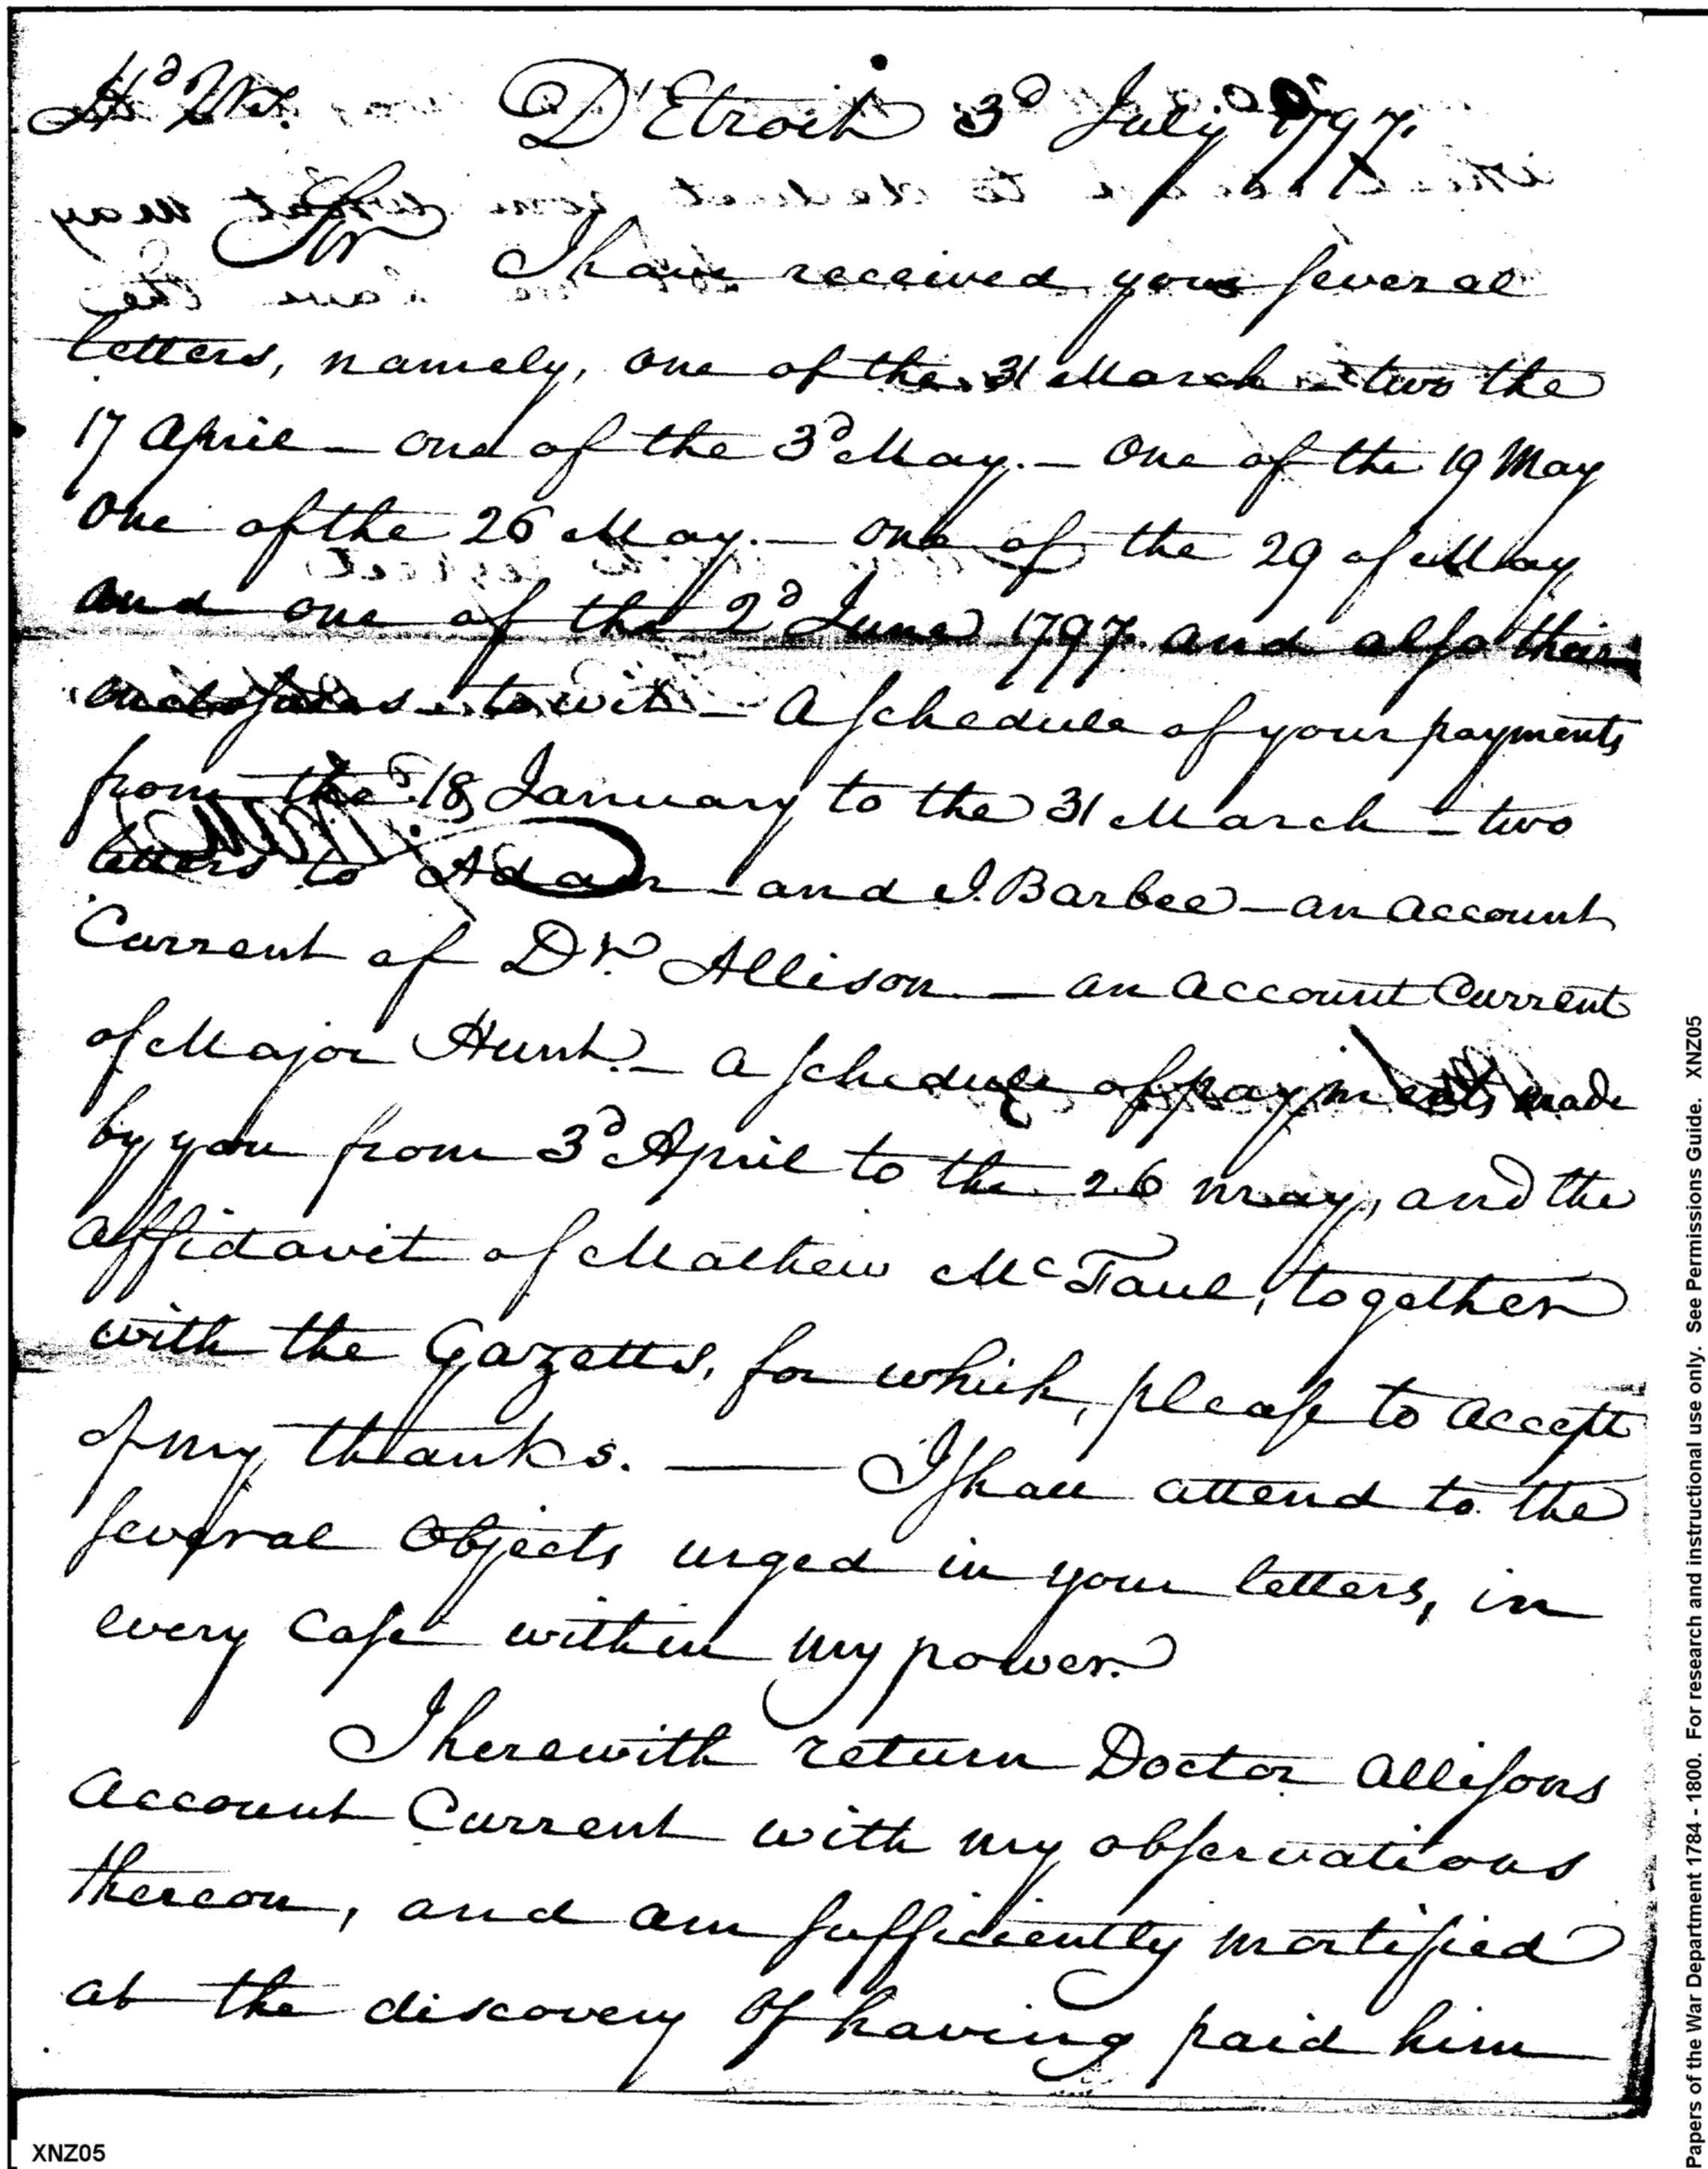 Hd Qrs. D'Etroit 3d July 1797.
Sir
I have received your several
letters, namely, one of the 31 March - two the
17 April - one of the 3d May. - One of the 19 May
One of the 26 May. - one of the 29 of May
and one of the 2d June 1797. and also their
enclosures - to wit - A schedule of your payments
from the 18 January to the 31 March - two
letters to Adair and J. Barbee - an account
Current of Dr. Allison - an account Current
of Major Hunt - a schedule of payments made
by you from 3d April to the 26 may, and the
affidavit of Mathew McFaul, together
with the Gazetts, for which, please to accept
of my thanks. - I shall attend to the
several Objects urged in your letters, in
every case within my power.
I herewith return Doctor Allisons
Account Current with my observations
thereon, and am sufficiently mortified
at the discovery of having paid him
XNZ05
Papers of the War Department 1784 - 1800. For research and instructional use only. See Permissions Guide. XNZ05